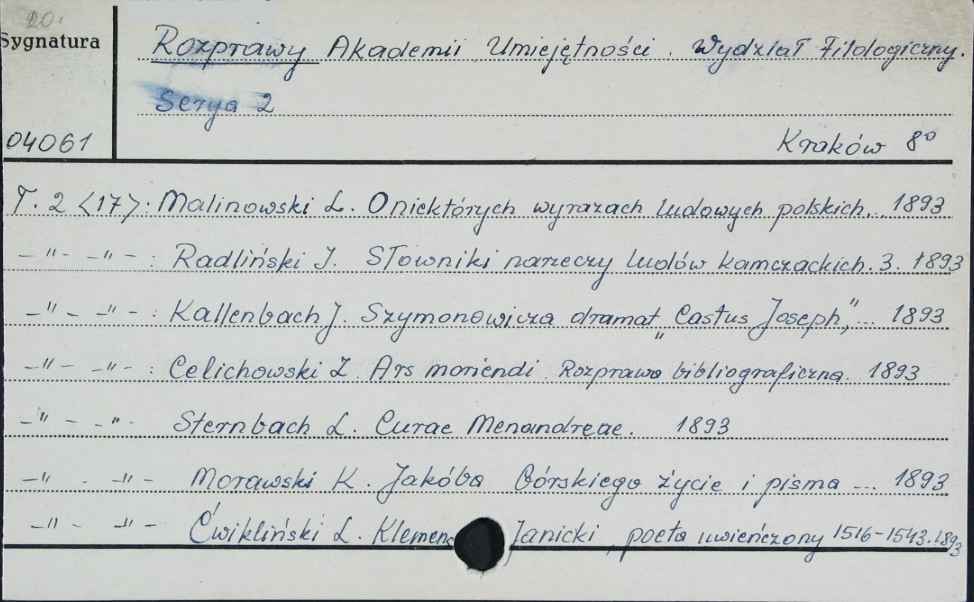 20.
Sygnatura
Rozprawy Akademii Umiejętności. Wydział Filologiczny.
Serya 2
04061
Kraków 8°
T. 2 <17>. Malinowski L. O niektórych wyrazach ludowych polskich... 1893
-"- -"- : Radliński J. Słowniki narzeczy ludów kamczackich. 3. 1893
-"- -"- : Kallenbach J. Szymonowicza dramat „Castus Joseph”,... 1893
-"- -"- : Celichowski Z. Ars moriendi. Rozprawa bibliograficzna. 1893
-"- -"- Sternbach L. Curae Menandreae. 1893
-"- -"- Morawski K. Jakóba Górskiego życie i pisma ... 1893
-"- -"- Ćwikliński L. Klemen Janicki, poeta uwieńczony 1516-1543. 1893